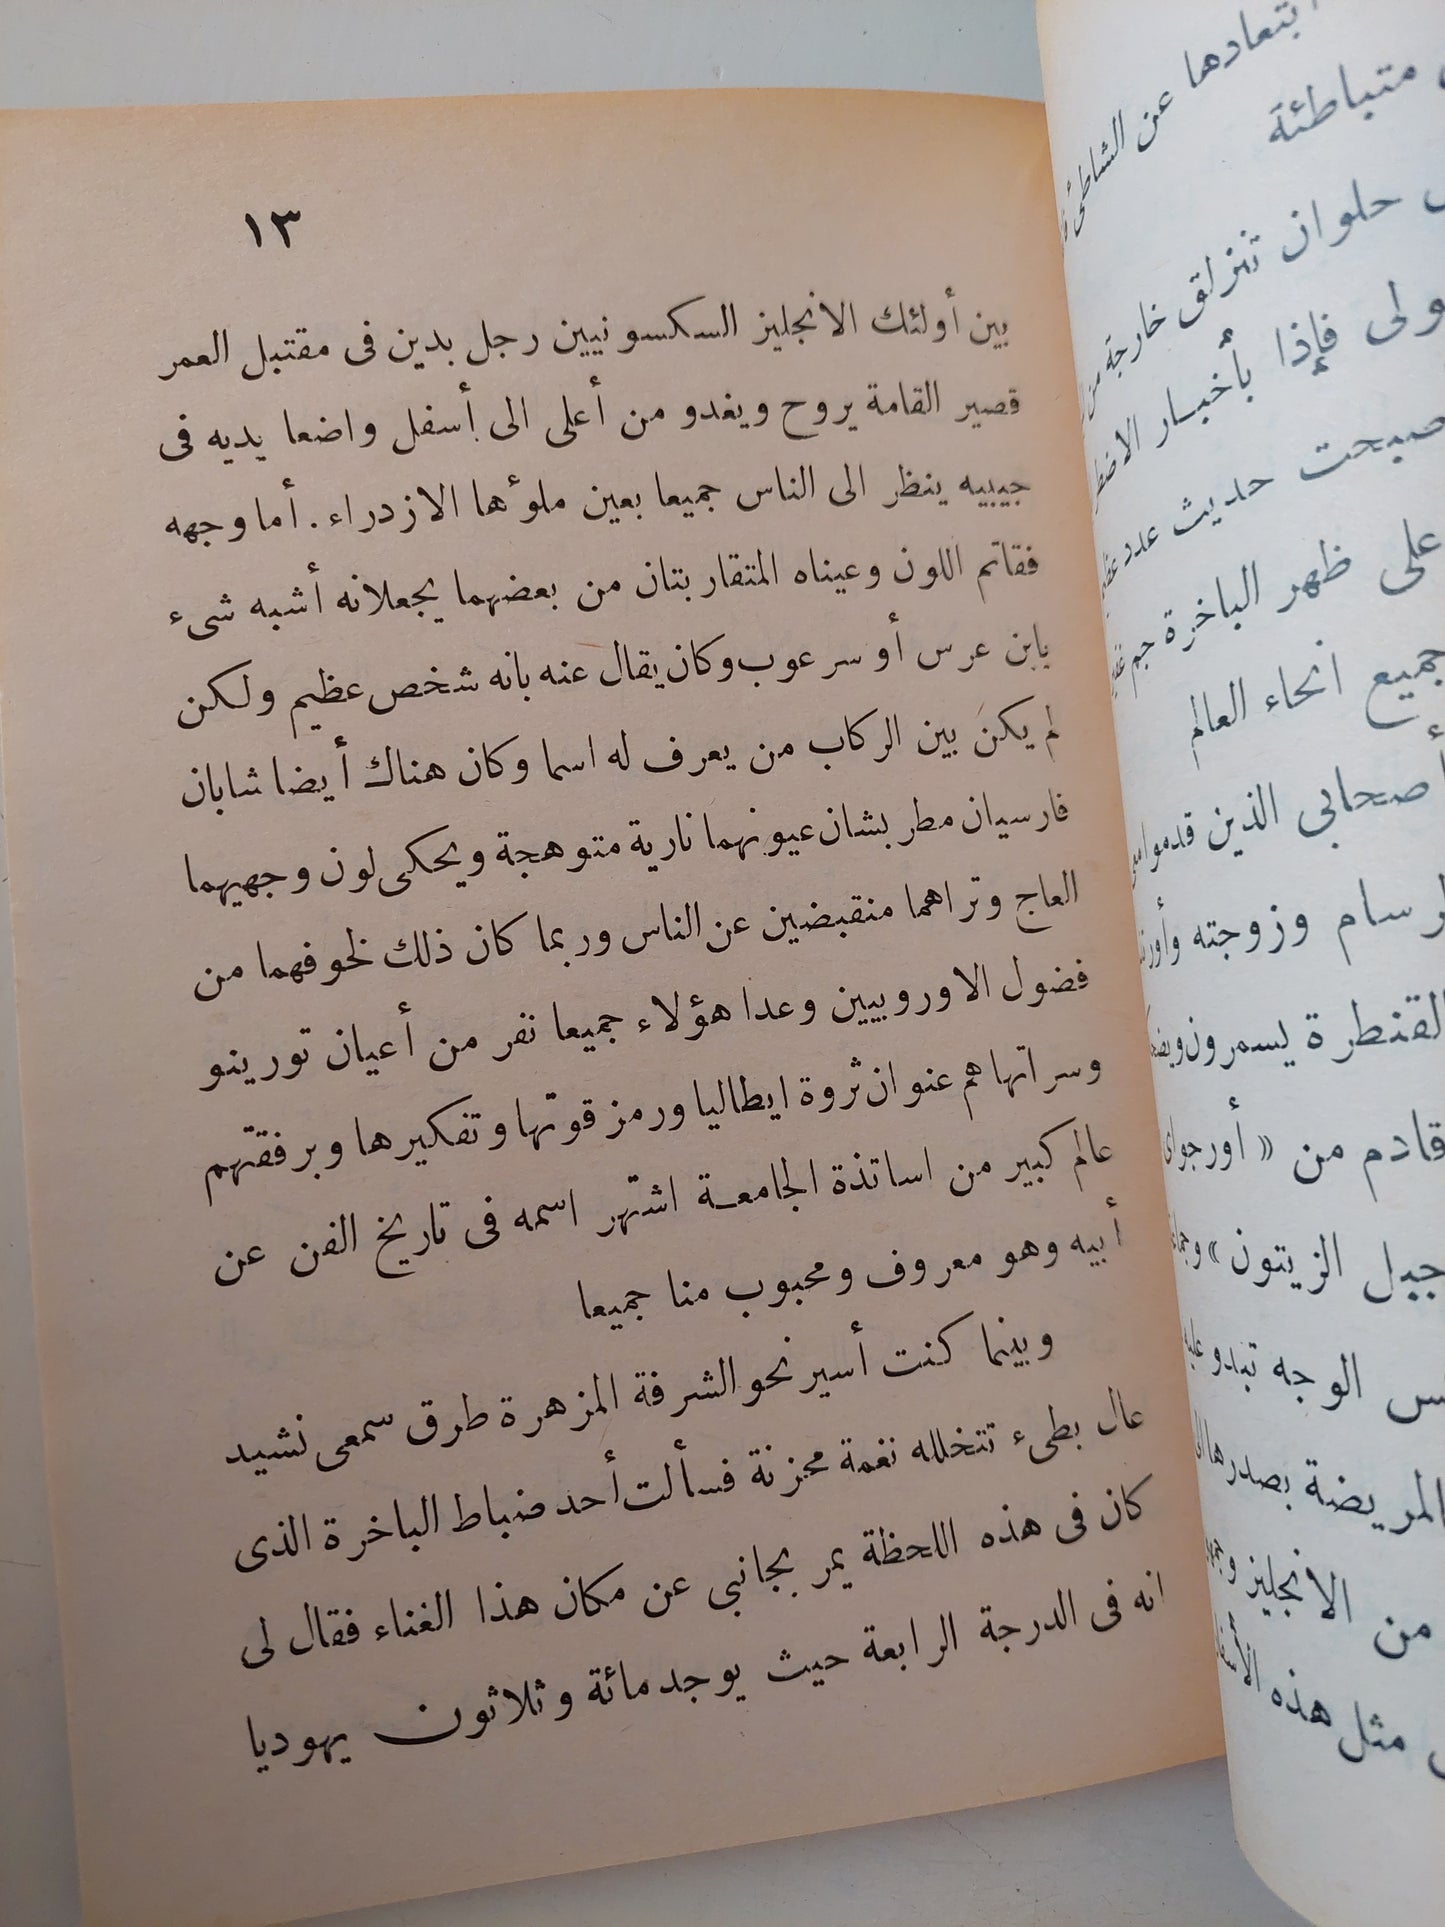 ١٣
بين أولئك الانجليز السكسونيين رجل بدين فى مقتبل العمر
قصير القامة يروح ويغدو من أعلى الى أسفل واضعا يديه فى
جيبيه ينظر الى الناس جميعا بعين ملؤها الازدراء . أما وجهه
فقاتم اللون وعيناه المتقاربتان من بعضهما يجعلانه أشبه شىء
بابن عرس أو سرعوب وكان يقال عنه بانه شخص عظيم ولكن
لم يكن بين الركاب من يعرف له اسما وكان هناك أيضا شابان
فارسيان مطربشان عيونهما نارية متوهجة ويحكى لون وجهيهما
العاج وتراهما منقبضين عن الناس وربما كان ذلك لخوفهما من
فضول الاوروبيين وعدا هؤلاء جميعا نفر من أعيان تورينو
وسراتها هم عنوان ثروة ايطاليا ورمز قوتها وتفكيرها وبرفقتهم
عالم كبير من اساتذة الجامعة اشتهر اسمه فى تاريخ الفن عن
أبيه وهو معروف ومحبوب منا جميعا
وبينما كنت أسير نحو الشرفة المزهرة طرق سمعى نشيد
عال بطىء تتخلله نغمة محزنة فسألت أحد ضباط الباخرة الذى
كان فى هذه اللحظة يمر بجانبى عن مكان هذا الغناء فقال لى
انه فى الدرجة الرابعة حيث يوجد مائة وثلاثون يهوديا
ابتعادها عن الشاطئ
متباطئة
حلوان تنزلق خارجة من
فإذا بأخبار
حديث عدد
على ظهر الباخرة جم
جميع انحاء العالم
أصحابى الذين قدموا
وزوجته
القنطرة يسمرون
قادم من « أورجواى
جبل الزيتون »
الوجه تبدو
المريضة بصدرها
من الانجليز
مثل هذه